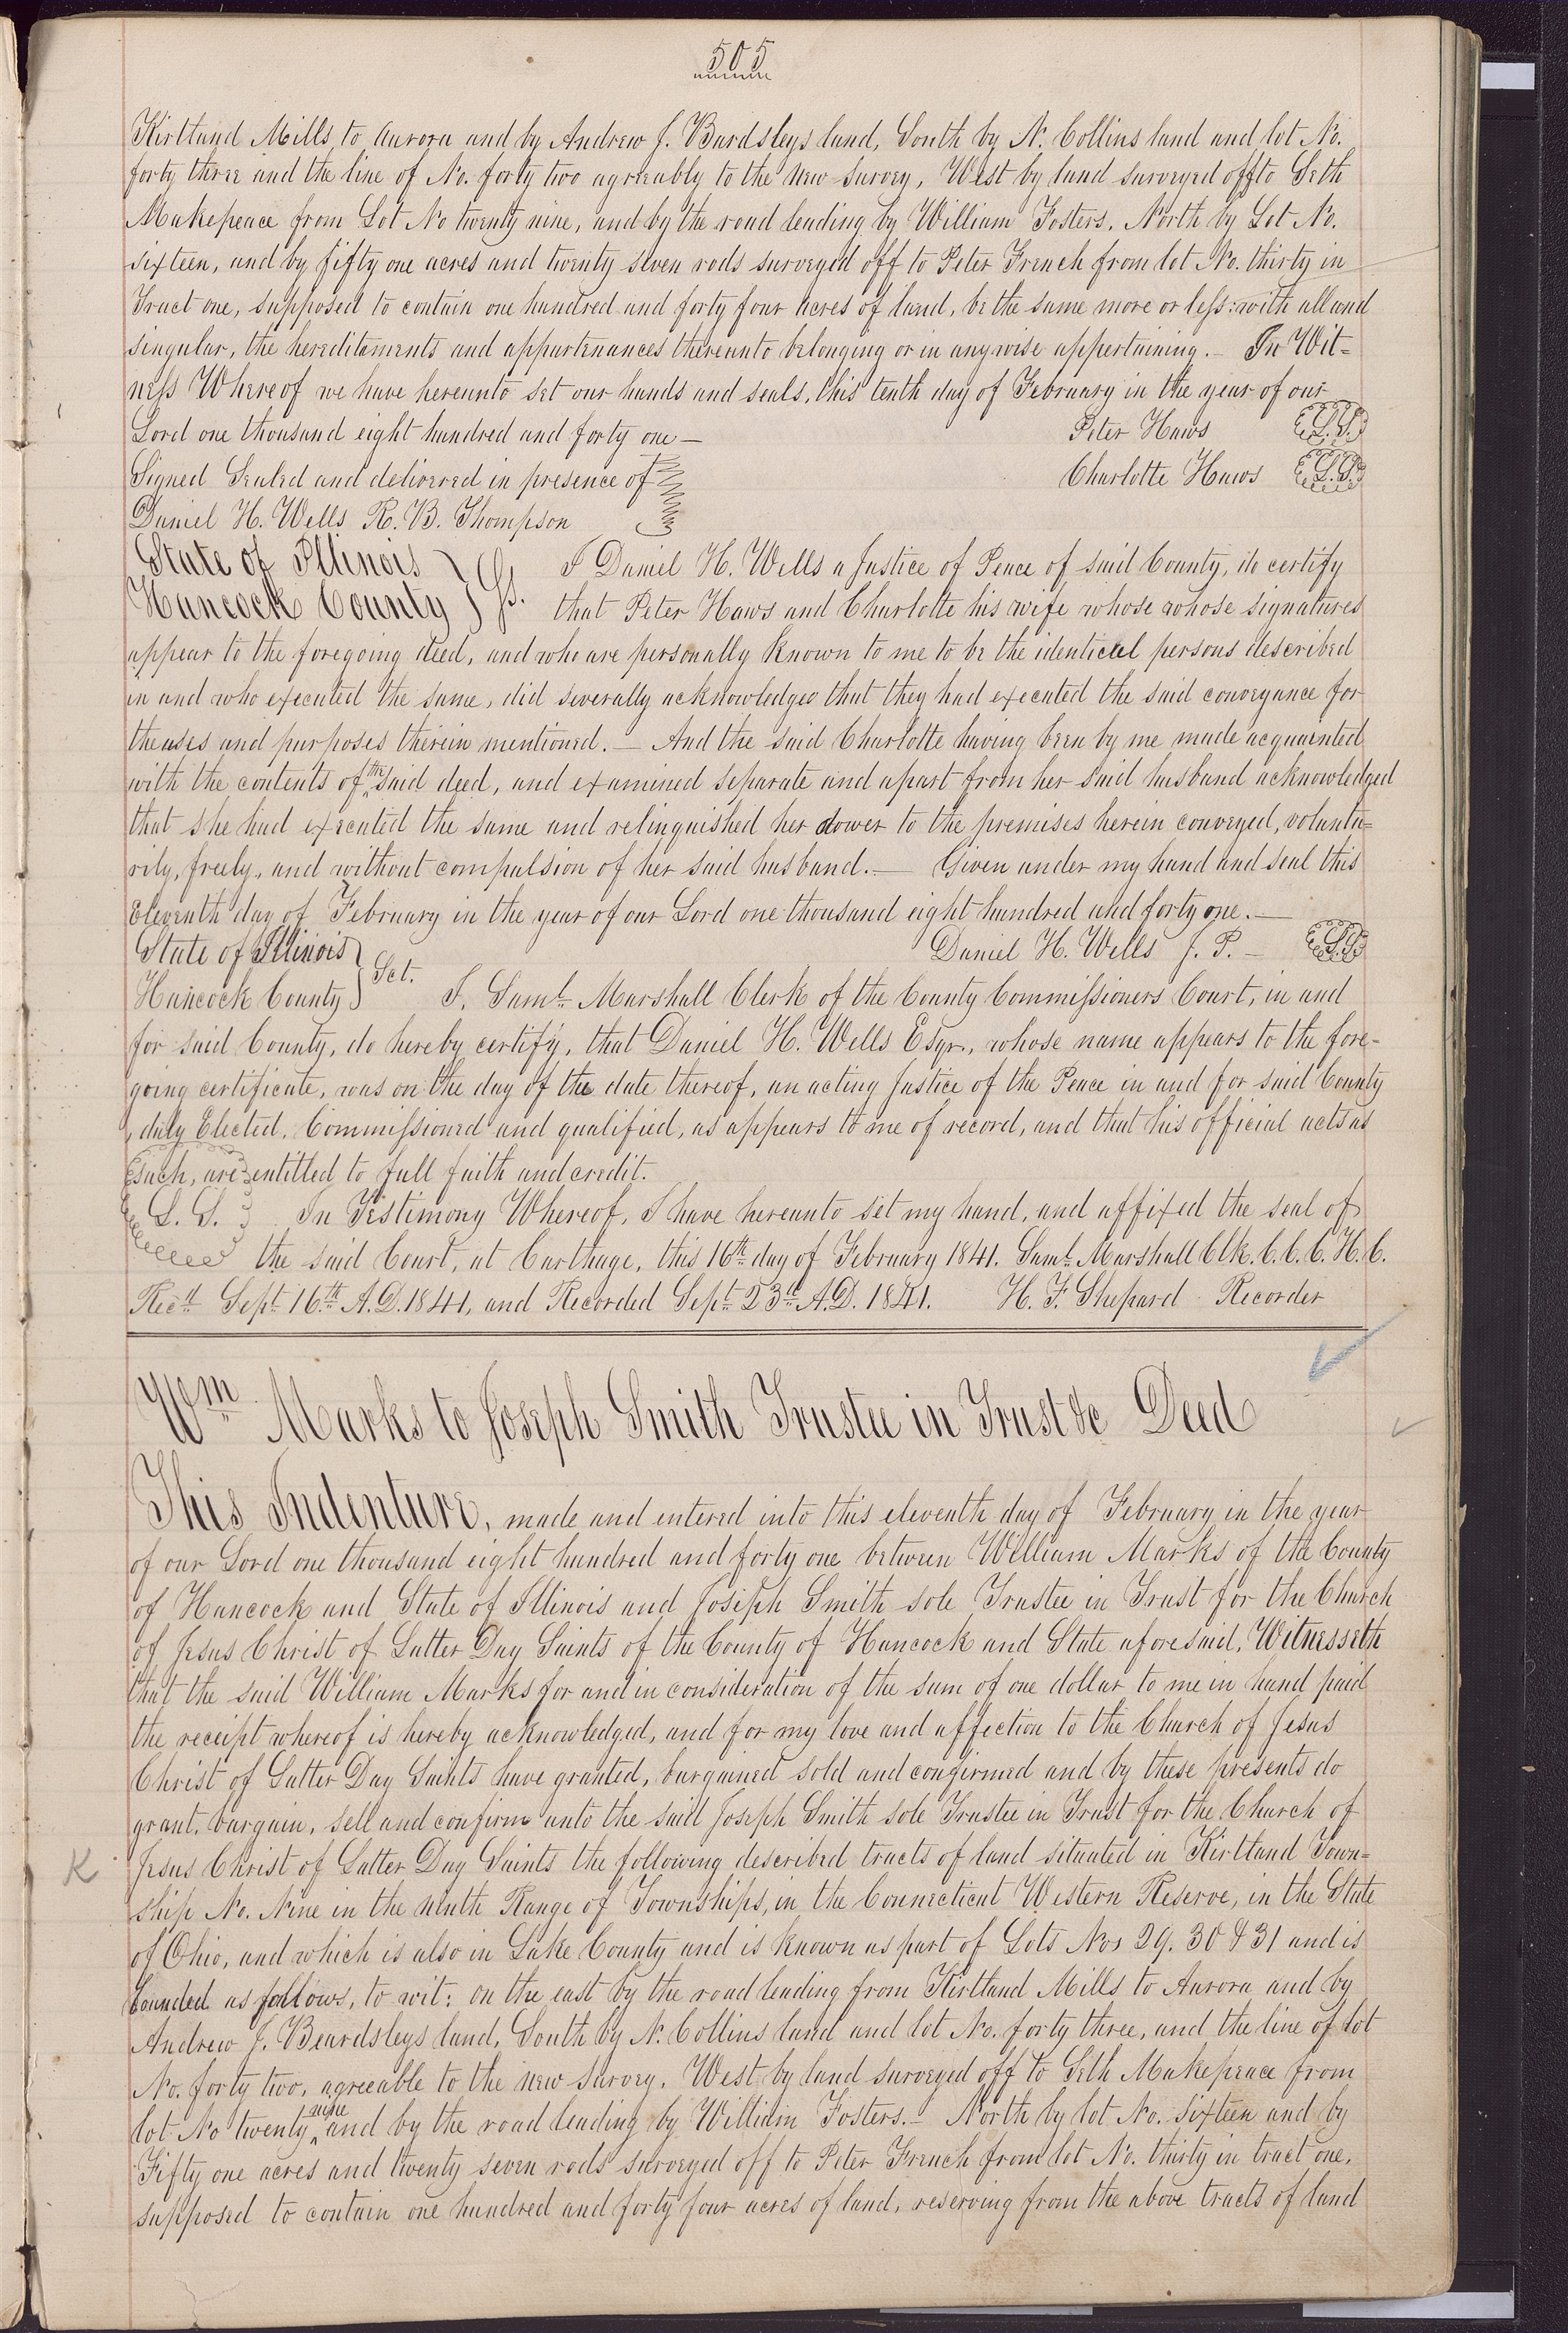 505
Kirtland Mills to Aurora and by Andrew J. Bardsleys land, South by N. Collins land and lot No.
forty three and the line of No. forty two agreeably to the new survey, West by land surveyed off to Seth
Makepeace from Lot No twenty nine, and by the road leading by William Fosters, North by Lot No.
sixteen, and by fifty one acres and twenty seven rods surveyed off to Peter French from lot No. thirty in
Tract one, supposed to contain one hundred and forty four acres of land, be the same more or less: with all and
singular, the hereditaments and appurtenances thereunto belonging or in anywise appertaining. — In Wit=
ness Whereof we have hereunto set our hands and seals, this tenth day of February in the year of our
Lord one thousand eight hundred and forty one — Peter Haws L.S.
Signed Sealed and delivered in presence of Charlotte Haws L.S.
Daniel H. Wells R. B. Thompson
State of Illinois } Ss. I Daniel H. Wells a Justice of Peace of said County, do certify
Hancock County } that Peter Haws and Charlotte his wife whose whose signatures
appear to the foregoing deed, and who are personally known to me to be the identical persons described
in and who executed the same, did severally acknowledges that they had executed the said conveyance for
the uses and purposes therein mentioned. — And the said Charlotte having been by me made acquainted
with the contents of the said deed, and examined separate and apart from her said husband acknowledged
that she had executed the same and relinquished her dower to the premises herein conveyed, volunta=
rily, freely, and without compulsion of her said husband. — Given under my hand and seal this
Eleventh day of February in the year of our Lord one thousand eight hundred and forty one. —
State of Illinois } Sct. Daniel H. Wells J. P. — L.S.
Hancock County } I, Saml. Marshall Clerk of the County Commissioners Court, in and
for said County, do hereby certify, that Daniel H. Wells Esqr., whose name appears to the fore-
going certificate, was on the day of the date thereof, an acting Justice of the Peace in and for said County
, duly Elected, Commissioned and qualified, as appears to me of record, and that his official acts as
such, are entitled to full faith and credit.
L. S. In Testimony Whereof, I have hereunto set my hand, and affixed the seal of
the said Court, at Carthage, this 16th day of February 1841. Saml. Marshall Clk. C. C. C. H. C.
Recd. Sept. 16th A.D. 1841, and Recorded Sept. 23d. A.D. 1841. H. F. Shepard Recorder
Wm Marks to Joseph Smith Trustee in Trust &c Deed
This Indenture, made and entered into this eleventh day of February in the year
of our Lord one thousand eight hundred and forty one between William Marks of the County
of Hancock and State of Illinois and Joseph Smith sole Trustee in Trust for the Church
of Jesus Christ of Latter Day Saints of the County of Hancock and State aforesaid, Witnesseth
that the said William Marks for and in consideration of the sum of one dollar to me in hand paid
the receipt whereof is hereby acknowledged, and for my love and affection to the Church of Jesus
Christ of Latter Day Saints have granted, bargained sold and confirmed and by these presents do
grant, bargain, sell and confirm unto the said Joseph Smith sole Trustee in Trust for the Church of
K Jesus Christ of Latter Day Saints the following described tracts of land situated in Kirtland Town=
ship No. Nine in the ninth Range of Townships, in the Connecticut Western Reserve, in the State
of Ohio, and which is also in Lake County and is known as part of Lots Nos 29. 30 & 31 and is
bounded as follows, to wit: on the east by the road leading from Kirtland Mills to Aurora and by
Andrew J. Beardsleys land, South by N. Collins land and lot No. forty three, and the line of lot
No. forty two, agreeable to the new survey. West by land surveyed off to Seth Makepeace from
lot No twenty nine and by the road leading by William Fosters. — North by lot No. sixteen and by
Fifty one acres and twenty seven rods surveyed off to Peter French from lot No. thirty in tract one,
supposed to contain one hundred and forty four acres of land, reserving from the above tracts of land